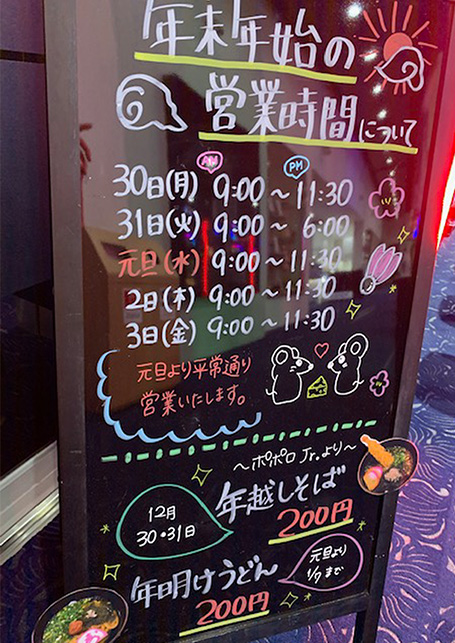 年末年始の
営業時間について
AM PM
30日(月) 9:00~11:30
31日(火) 9:00~6:00
元旦(水) 9:00~11:30
2日(木) 9:00~11:30
3日(金) 9:00~11:30
元旦より平常通り
営業いたします。
~ポポロJr.より~
12月
30・31日
年越しそば
200円
年明けうどん
200円
元旦より
1/7まで